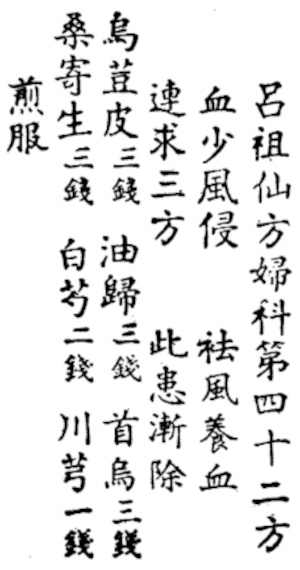 呂祖仙方婦科第四十二方
血少風侵 祛風養血
連求三方 此患漸除
烏荳皮三錢 油歸三錢 首烏三錢
桑寄生三錢 白芍二錢 川芎一錢
煎服